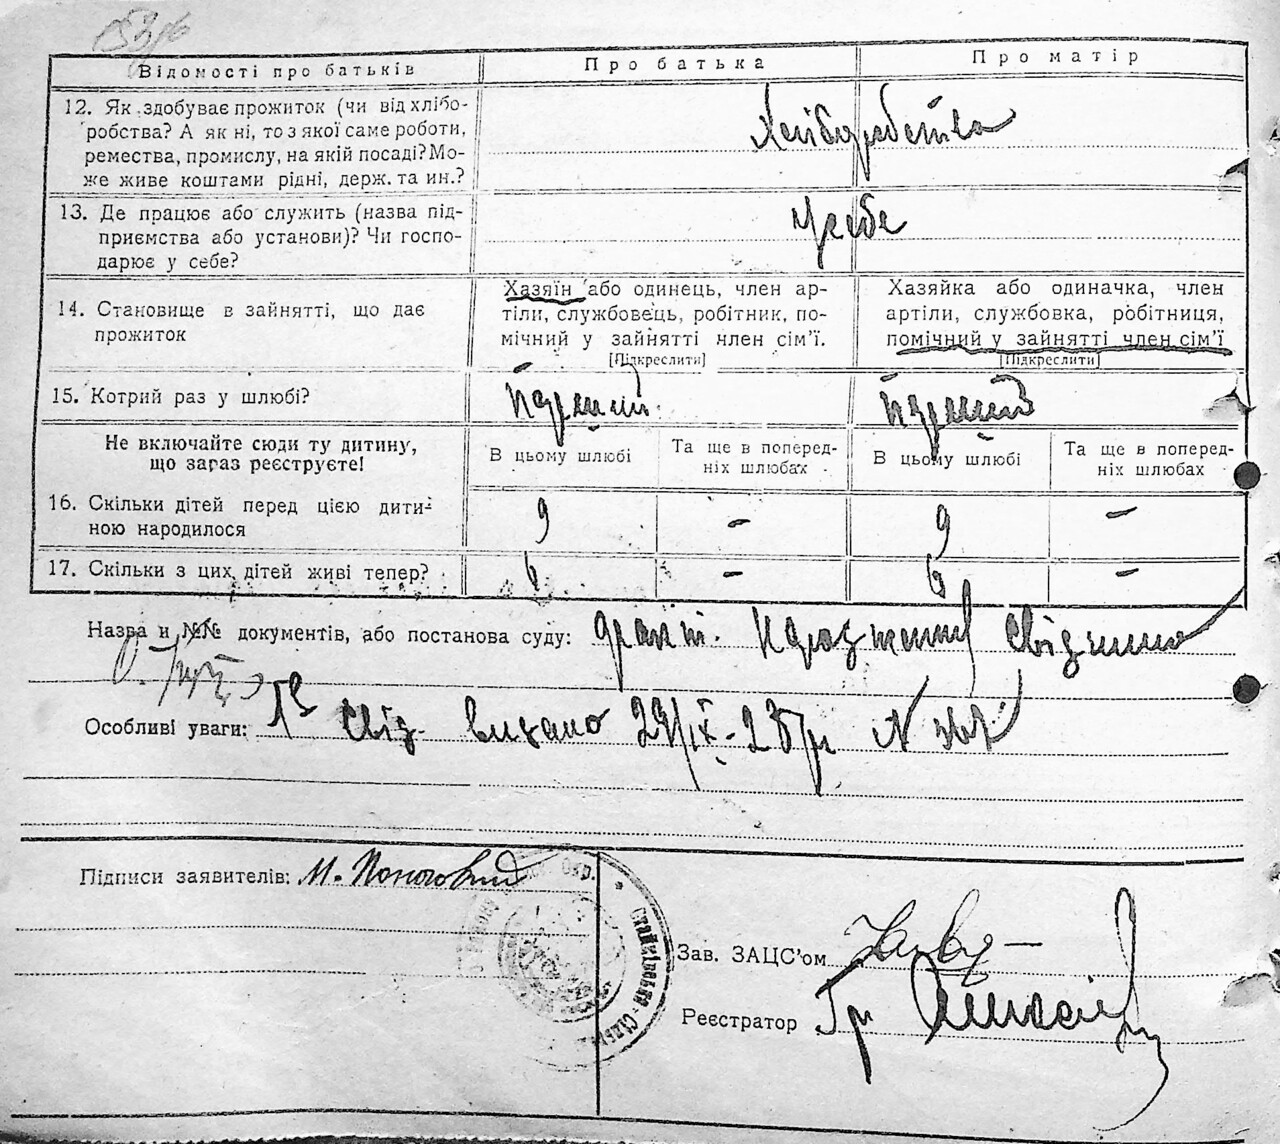 Відомості про батьків
Про батька
Про матір
12. Як здобуває прожиток (чи від хлібо-
робства? А як ні, то з якої саме роботи,
ремества, промислу, на якій посаді? Мо-
же живе коштами рідні, держ. та ин.?
Хліборобства
13. Де працює або служить (назва під-
приємства або установи)? Чи госпо-
дарює у себе?
У себе
14. Становище в зайнятті, що дає
прожиток
Хазяїн або одинець, член ар-
тіли, службовець, робітник, по-
мічний у зайнятті член сім’ї.
[Підкреслити]
Хазяйка або одиначка, член
артіли, службовка, робітниця,
помічний у зайнятті член сім’ї
[Підкреслити]
15. Котрий раз у шлюбі?
Перший
Перший
Не включайте сюди ту дитину,
що зараз реєструєте!
В цьому шлюбі
Та ще в поперед-
ніх шлюбах
В цьому шлюбі
Та ще в поперед-
ніх шлюбах
16. Скільки дітей перед цією дити-
ною народилося
9
-
9
-
17. Скільки з цих дітей живі тепер?
6
-
6
-
Назва и №№ документів, або постанова суду:
Особливі уваги: Свід. видано
Підписи заявителів: М.
Зав. ЗАЦС’ом
Реєстратор